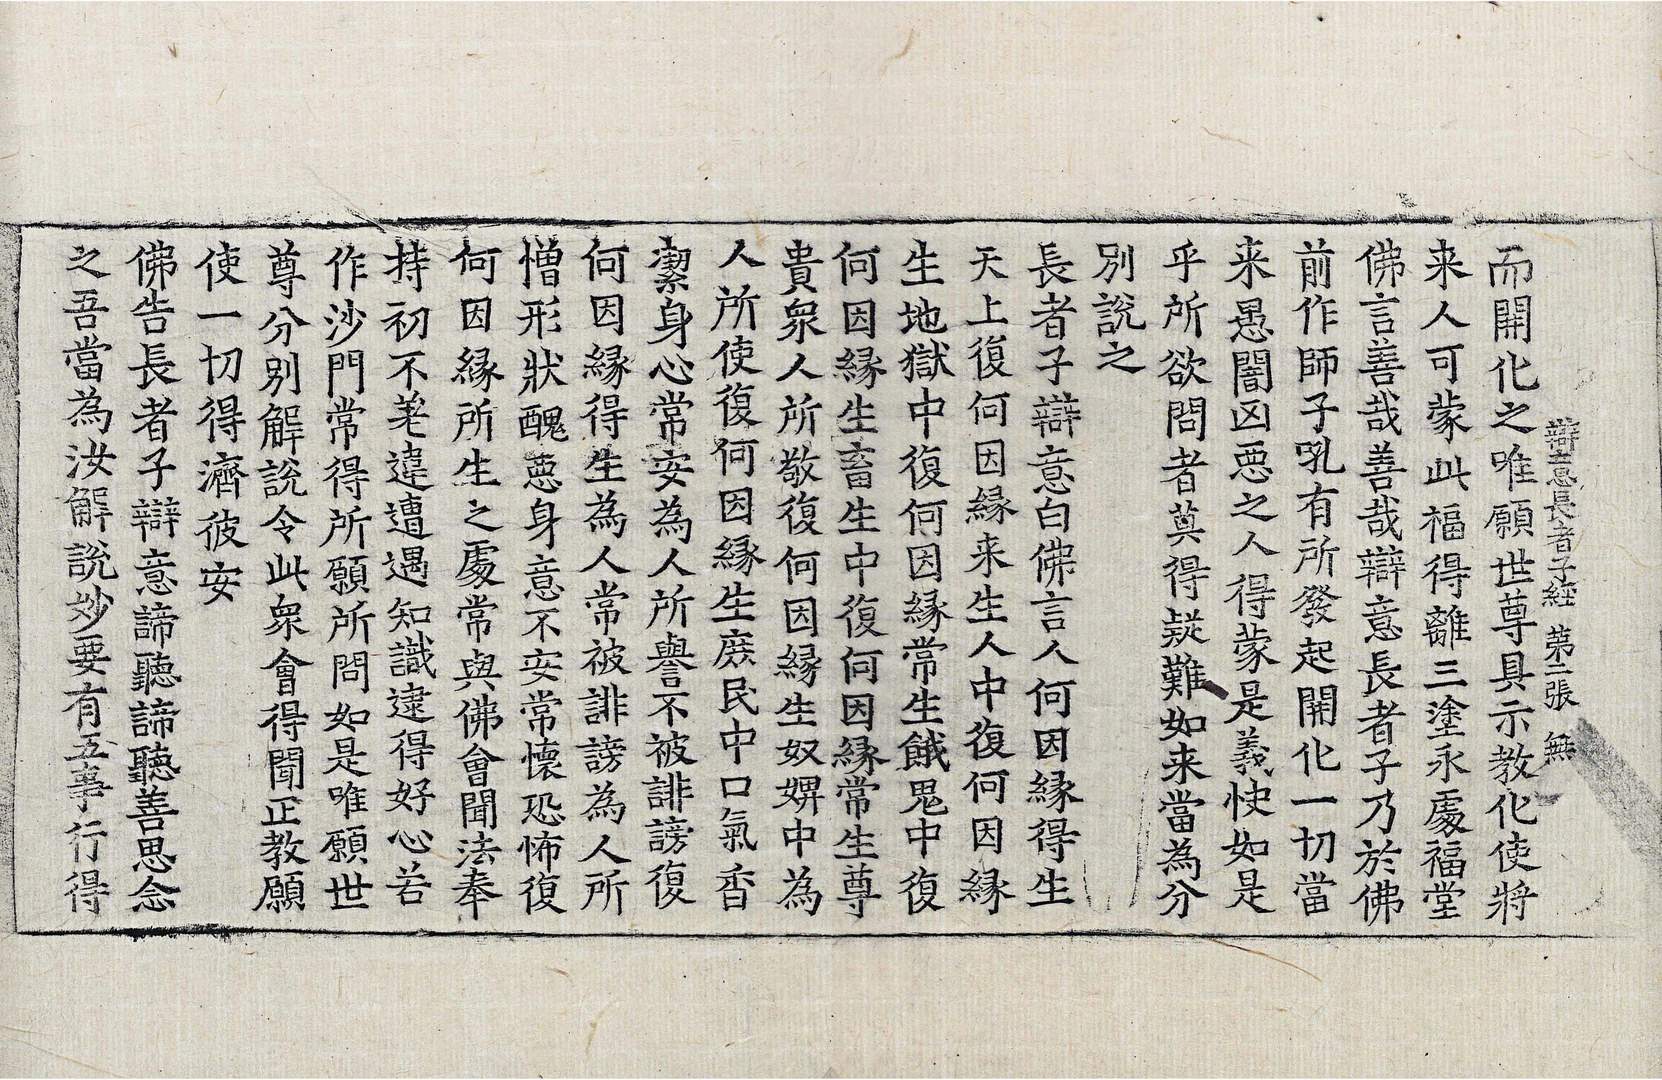 辯意長者子經 第二張 無
而開化之唯願世尊具示教化使將
来人可蒙此福得離三塗永處福堂
佛言善哉善哉辯意長者子乃於佛
前作師子吼有所發起開化一切當
来愚闇凶惡之人得蒙是義快如是
乎所欲問者莫得疑難如来當為分
別說之
長者子辯意白佛言人何因緣得生
天上復何因緣来生人中復何因緣
生地獄中復何因緣常生餓鬼中復
何因緣生畜生中復何因緣常生尊
貴衆人所敬復何因緣生奴婢中為
人所使復何因緣生庶民中口氣香
潔身心常安為人所譽不被誹謗復
何因緣得生為人常被誹謗為人所
憎形狀醜惡身意不安常懷恐怖復
何因緣所生之處常與佛會聞法奉
持初不差違遭遇知識逮得好心若
作沙門常得所願所問如是唯願世
尊分別解說令此衆會得聞正教願
使一切得濟彼安
佛告長者子辯意諦聽諦聽善思念
之吾當為汝解說妙要有五事行得